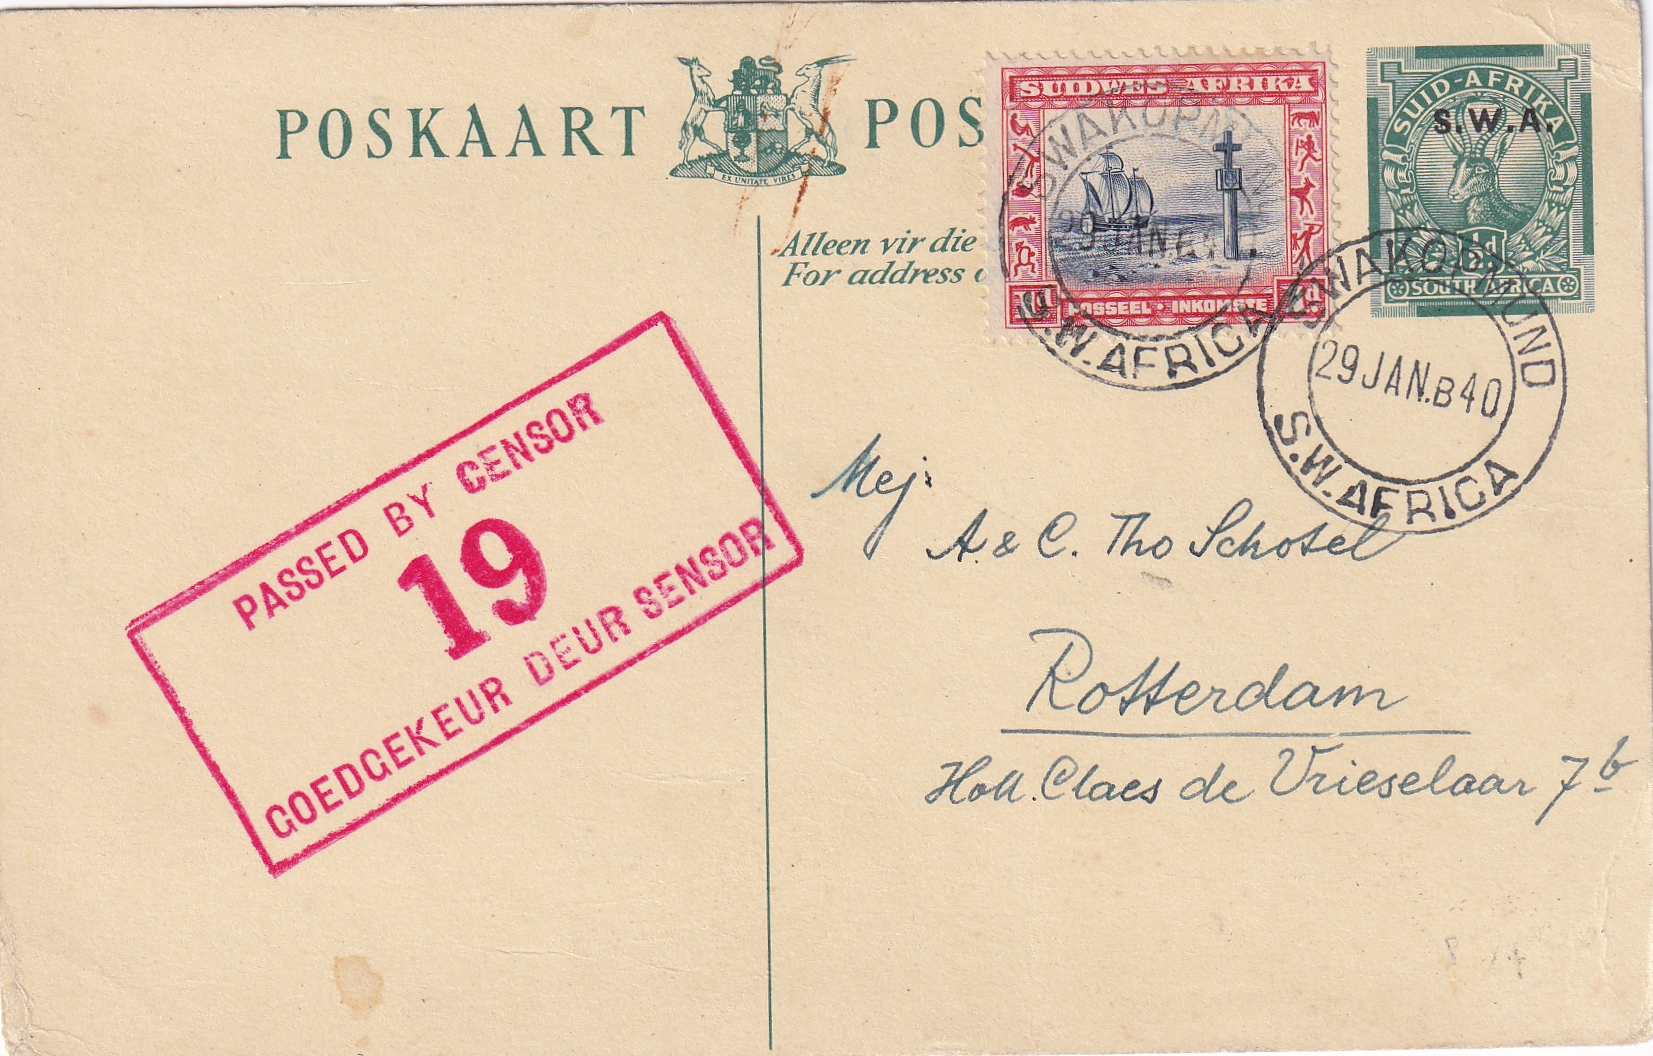 POSKAART POS
EX UNITATE VIRES
SUIDWES-AFRIKA
POSSEEL·INKOMSTE
SUID-AFRIKA
S.W.A.
SOUTH AFRICA
Alleen vir die
For address
SWAKOPMUND
29 JAN. 40
S.W.AFRICA
SWAKOPMUND
29 JAN.B40
S.W.AFRICA
PASSED BY CENSOR
19
GOEDGEKEUR DEUR SENSOR
Mej.
A & C. Tho Schotel
Rotterdam
Claes de Vrieselaar 7b